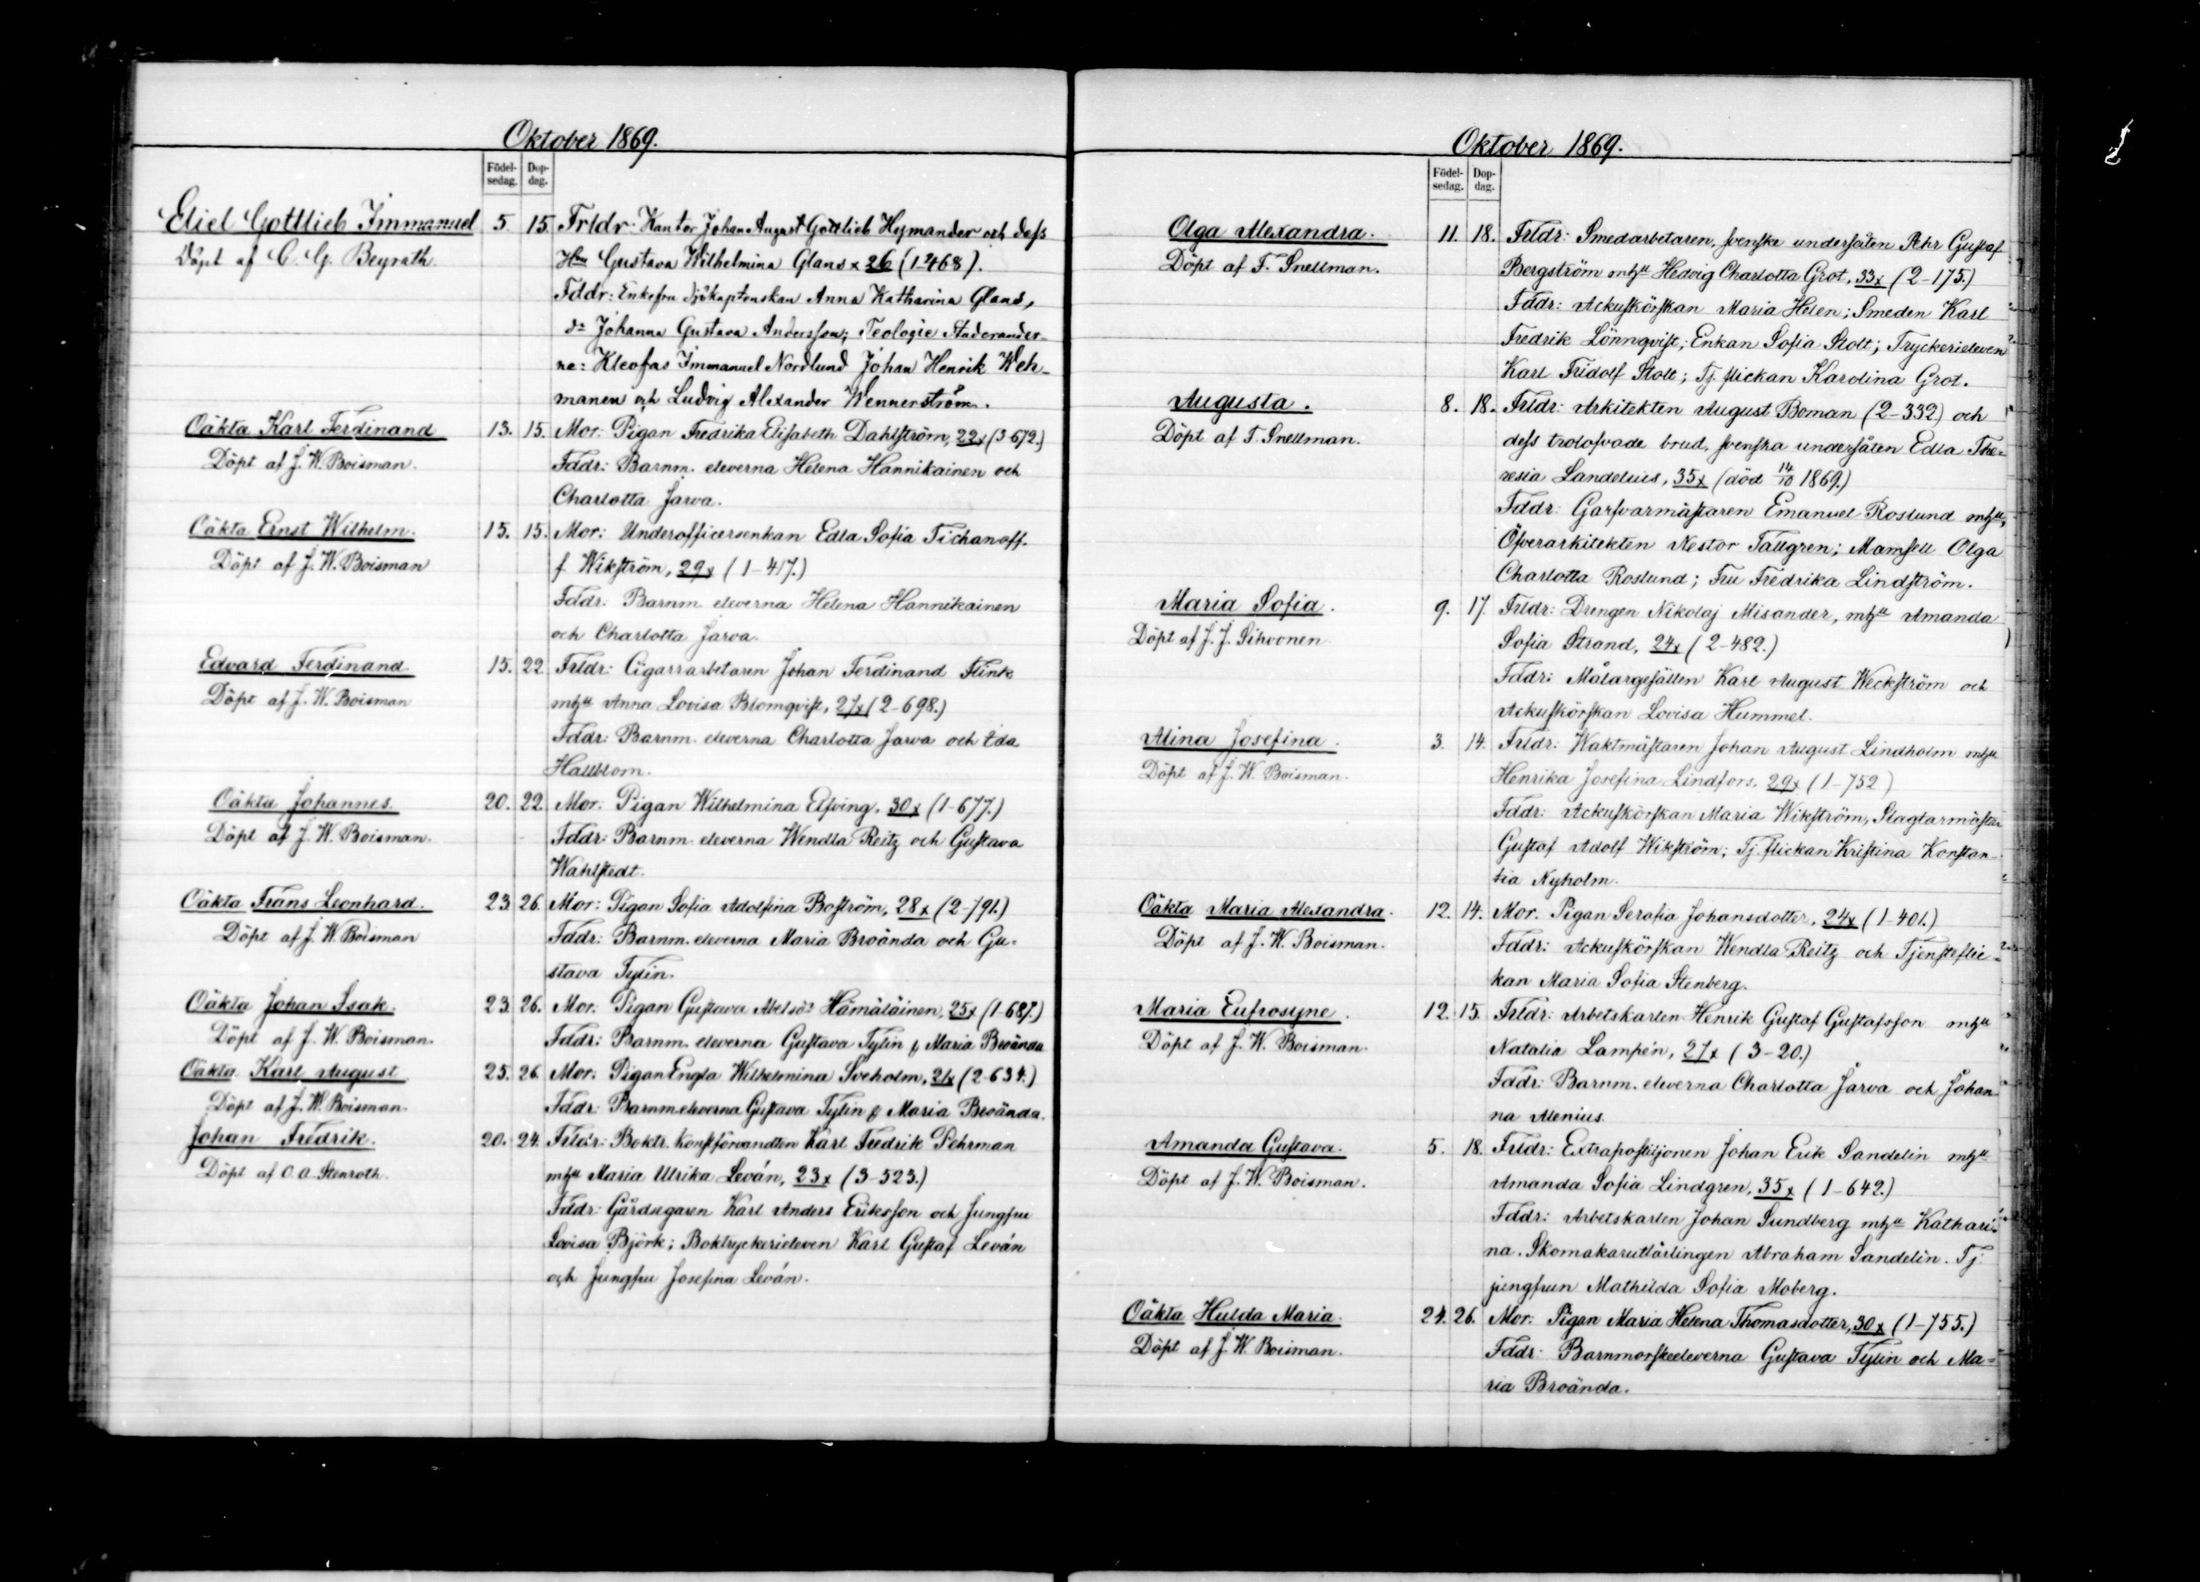 Oktober 1869.
Födel-
sedag.
Dop-
dag.
Eliel Gottlieb Immanuel 5 15 Frldr: Kantor Johan August Gottlieb Hymander och dess
Döpt af C. G. Beyrath. Hru Gustava Wilhelmina Glans x 26 (1-468).
Fddr: Enkefru Sjökaptenskan Anna Katharina Glans,
do Johanna Gustava Andersson; Teologie Studerander-
ne: Kleofas Immanuel Nordlund Johan Henrik Weh-
manen och Ludvig Alexander Wennerström.
Oäkta Karl Ferdinand 13. 15. Mor: Pigan Fredrika Elisabeth Dahlström, 22x (3-672.)
Döpt af J. W. Boisman. Fddr: Barnm. eleverna Helena Hannikainen och
Charlotta Jarva.
Oäkta Ernst Wilhelm. 15. 15. Mor: Underofficersenkan Edla Sofia Tichanoff.
Döpt af J. W. Boisman f. Wikström, 29x (1-417.)
Fddr. Barnm. eleverna Helena Hannikainen
och Charlotta Jarva.
Edvard Ferdinand. 15. 22 Frldr: Cigarrarbetaren Johan Ferdinand Flink
Döpt af J. W. Boisman mhu Anna Lovisa Blomqvist, 27x (2-698.)
Fddr: Barnm. eleverna Charlotta Jarva och Ida
Hallblom.
Oäkta Johannes. 20. 22. Mor: Pigan Wilhelmina Elfving, 30x (1-677.)
Döpt af J. W. Boisman. Fddr: Barnm. eleverna Wendla Reitz och Gustava
Wahlstedt.
Oäkta Frans Leonhard. 23 26. Mor: Pigan Sofia Adolfina Boström, 28x (2-791.)
Döpt af J. W. Boisman Fddr: Barnm. eleverna Maria Broända och Gu-
stava Tylin.
Oäkta Johan Isak. 23. 26. Mor. Pigan Gustava Abelsdr Hämäläinen, 25x (1-687.)
Döpt af J. W. Boisman. Fddr: Barnm. eleverna Gustava Tylin & Maria Broända
Oäkta Karl August 25. 26. Mor: Pigan Engla Wilhelmina Sveholm, 21x (2-634.)
Döpt af J. W. Boisman. Fddr: Barnm eleverna Gustava Tylin & Maria Broända.
Johan Fredrik. 20. 24. Frldr: Boktr. konstförvandten Karl Fredrik Pehrman
Döpt af O. A. Stenroth. mhu Maria Ulrika Leván, 23x (3-523.)
Fddr: Gårdsegaren Karl Anders Eriksson och Jungfru
Lovisa Björk; Boktryckerieleven Karl Gustaf Leván
och Jungfru Josefina Leván.
Oktober 1869.
Födel-
sedag.
Dop-
dag.
Olga Alexandra. 11. 18. Frldr: Smedarbetaren, svenske undersåten Pehr Gustaf
Döpt af F. Snellman. Bergström mhu Hedvig Charlotta Grot, 33x (2-175.)
Fddr: Ackuskörskan Maria Helen; Smeden Karl
Fredrik Lönnqvist; Enkan Sofia Stolt; Tryckerieleven
Karl Fridolf Stolt; Tj. flickan Karolina Grot.
Augusta. 8. 18. Frldr: Arkitekten August Boman (2-332) och
Döpt af F. Snellman. dess trolofvade brud, svenska undersåten Edla The-
resia Landelius, 35x (död 14/10 1869.)
Fddr: Garfvarmästaren Emanuel Roslund mhu,
Öfverarkitekten Nestor Tallgren; Mamsell Olga
Charlotta Roslund; Fru Fredrika Lindström.
Maria Sofia. 9. 17 Frldr: Drengen Nikolaj Misander, mhu Amanda
Döpt af J. J. Sihvonen. Sofia Strand, 24x (2-482.)
Fddr: Målargesällen Karl August Weckström och
Ackuskörskan Lovisa Hummel.
Alina Josefina. 3. 14. Frldr: Waktmästaren Johan August Lindholm mhu
Döpt af J. W. Boisman. Henrika Josefina Lindfors, 29x (1-752)
Fddr: Ackuskörskan Maria Wikström, Slagtarmästar
Gustaf Adolf Wikström; Tj. flickan Kristina Konstan-
tia Nyholm.
Oäkta Maria Alexandra. 12. 14. Mor. Pigan Serafia Johansdotter, 24x (1-401.)
Döpt af J. W. Boisman. Fddr: Ackuskörskan Wendla Reitz och Tjensteflic-
kan Maria Sofia Stenberg.
Maria Eufrosyne. 12. 15. Frldr: Arbetskarlen Henrik Gustaf Gustafsson mhu
Döpt af J. W. Boisman. Natalia Lampén, 27x (3-20.)
Fddr: Barnm. eleverna Charlotta Jarva och Johan-
na Alenius.
Amanda Gustava. 5. 18. Frldr: Extrapostiljonen Johan Erik Sandelin mhu
Döpt af J. W. Boisman. Amanda Sofia Lindgren, 35x (1-642.)
Fddr: Arbetskarlen Johan Sundberg mhu Kathari-
na. Skomakareutlärlingen Abraham Sandelin. Tj.
jungfrun Mathilda Sofia Moberg.
Oäkta Hulda Maria. 24. 26. Mor: Pigan Maria Helena Thomasdotter, 30x (1-755.)
Döpt af J. W. Boisman. Fddr: Barnmorskeeleverna Gustava Tylin och Ma-
ria Broända.